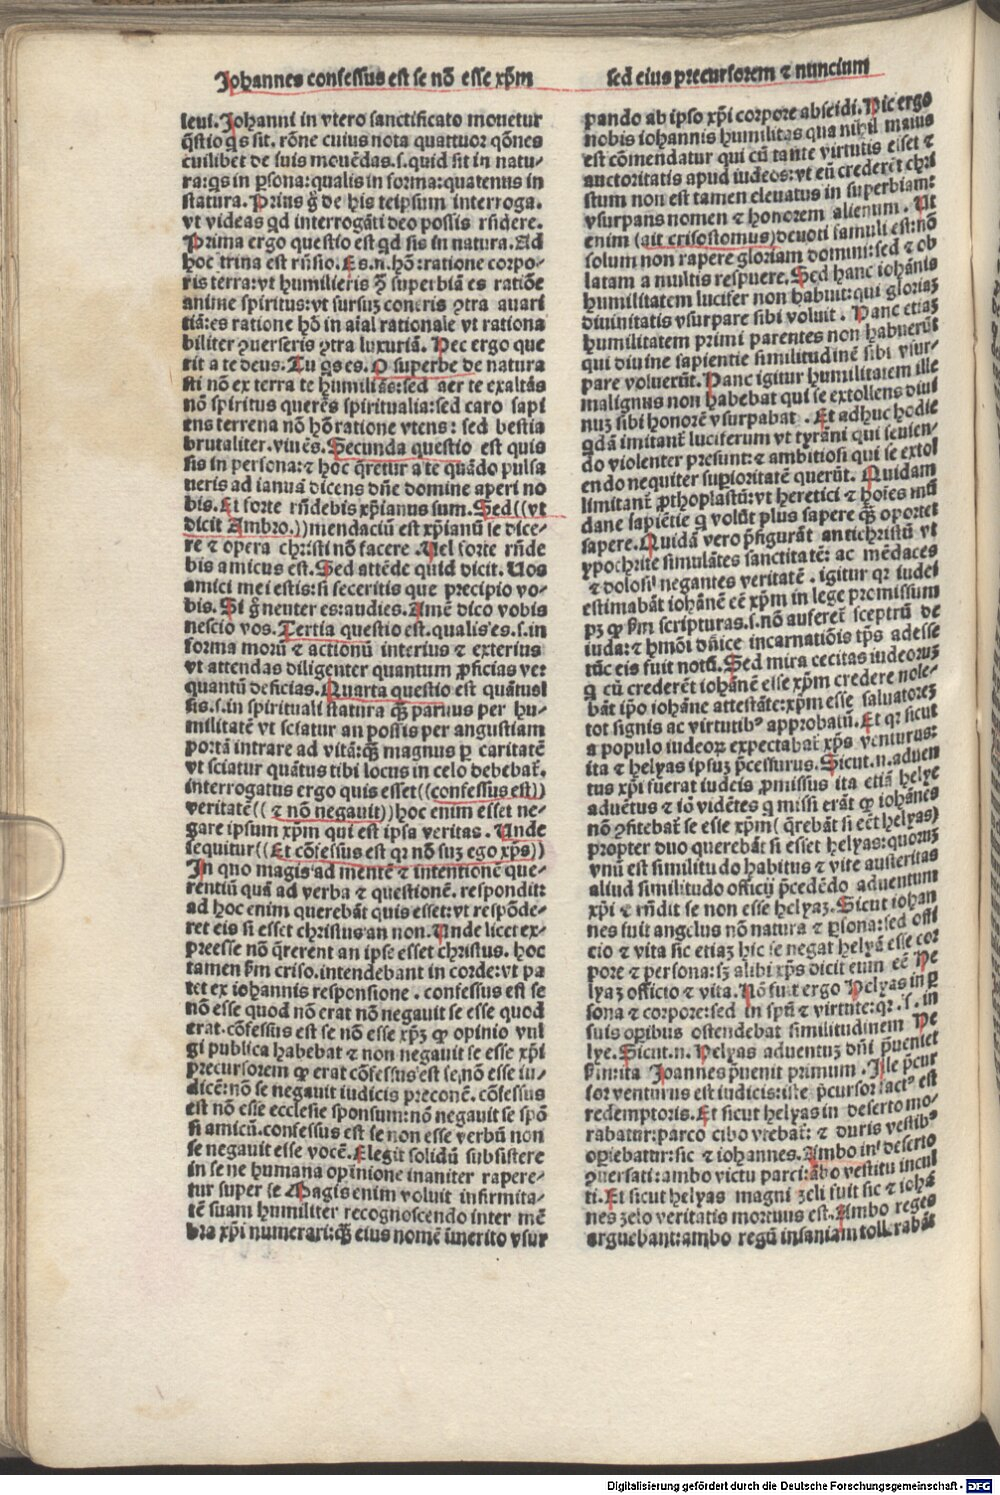 Johannes confessus est se nō esse xp̄m
sed eius precursorem ⁊ nuncium
leui. Johanni in vtero sanctificato mouetur
q̄stio q̇s sit. rōne cuius nota quattuor q̄ōnes
cuilibet de suis mouēdas. s. quid sit in natu⸗
ra: q̇s in ꝑsona: qualis in forma: quatenus in
statura. Prius g̊ de his teipsum interroga.
vt videas qd interrogāti deo possis rn̄dere.
Prima ergo questio est qd sis in natura. Ad
hoc trina est rn̄sio. Es. n. hō: ratione corpo⸗
ris terra: vt humilieris ꝯ̄ superbiā es ratiōe
anime spiritus: vt sursuꝫ con̄eris ꝯtra auari
tiā: es ratione hō in aīal rationale vt rationa
biliter ꝯuerseris ꝯtra luxuriā. Nec ergo que
rit a te deus. Tu q̇s es. O superbe de natura
sti nō ex terra te humiliās: sed aer te exaltās
nō spiritus querēs spiritualia: sed caro sapi
ens terrena nō hō ratione vtens: sed bestia
brutaliter. viuēs. Secunda questio est quis
sis in persona: ⁊ hoc q̄retur a te quādo pulsa
ueris ad ianuā dicens dn̄e domine aperi no
bis. Et forte rn̄debis xp̄ianus sum. Sed ((vt
dicit Ambro.)) mendaciū est xp̄ianū se dice⸗
re ⁊ opera christi nō facere. Vel forte rn̄de
bis amicus est. Sed attēde quid dicit. Uos
amici mei estis: si feceritis que precipio vo⸗
bis. Si g̊ neuter es: audies. Amē dico vobis
nescio vos. Tertia questio est. qualis es. s. in
forma morū ⁊ actionū interius ⁊ exterius
vt attendas diligenter quantum ꝓficias vel
quantū deficias. Quarta questio est quātus
sis. s. in spirituali statura qꝫ̄ paruus per hu⸗
militatē vt sciatur an possis per angustiam
portā intrare ad vitā: qꝫ̄ magnus ꝑ caritatē
vt sciatur quātus tibi locus in celo debebat̄.
interrogatus ergo quis esset ((confessus est))
veritatē ((⁊ nō negauit)) hoc enim esset ne⸗
gare ipsum xp̄m qui est ipsa veritas. Unde
sequitur ((Et cōfessus est qꝛ nō suꝫ ego xp̄s))
In quo magis ad mentē ⁊ intentionē que⸗
rentiū quā ad verba ⁊ questionē. respondit:
ad hoc enim querebāt quis esset: vt respōde⸗
ret eis si esset christus an non. Unde licet ex⸗
preesse nō q̄rerent an ipse esset christus. hoc
tamen ẜm criso. intendebant in corde: vt pa
tet ex iohannis responsione. confessus est se
nō esse quod nō erat nō negauit se esse quod
erat. cōfessus est se nō esse xp̄ꝫ ꝙ opinio vul
gi publica habebat ⁊ non negauit se esse xp̄i
precursorem ꝙ erat cōfessus est se nō esse iu⸗
dicē: nō se negauit iudicis preconē. cōfessus
est nō esse ecclesie sponsum: nō negauit se spō
si amicū. confessus est se non esse verbū non
se negauit esse vocē. Elegit solidū subsistere
in se ne humana opinione inaniter rapere⸗
tur super se Magis enim voluit infirmita⸗
tē suam humiliter recognoscendo inter mē
bra xp̄i numerari: qꝫ̄ eius nomē īmerito vsur
pando ab ipso xp̄i corpore abscidi. Hic ergo
nobis iohannis humilitas qua nihil maius
est cōmendatur qui cū tante virtutis esset ⁊
auctoritatis apud iudeos: vt eū crederēt chri
stum non est tamen eleuatus in superbiam:
vsurpans nomen ⁊ honorem alienum. Ut
enim (ait crisostomus) deuoti famuli est: nō
solum non rapere gloriam domini: sed ⁊ ob
latam a multis respuere. Sed hanc iohānis
humilitatem lucifer non habuit: qui gloriaꝫ
diuinitatis vsurpare sibi voluit. Hanc etiaꝫ
humilitatem primi parentes non habuerūt
qui diuine sapientie similitudinē sibi vsur⸗
pare voluerūt. Hanc igitur humilitatem ille
malignus non habebat qui se extollens diui
nuꝫ sibi honorē vsurpabat. Et adhuc hodie
qdā imitant̄ luciferum vt tyrāni qui seuien⸗
do violenter presunt: ⁊ ambitiosi qui se extol
endo nequiter suꝑioritatē querūt. Quidam
limitant̄ ꝓthoplastū: vt heretici ⁊ hoīes mū
dane sapiētie q̇ volūt plus sapere qꝫ̄ oportet
sapere. Quidā vero p̄figurāt antichristū vt
ypochrite simulātes sanctitatē: ac mēdaces
⁊ dolosi negantes veritatē. igitur qꝛ iudei
estimabāt iohānē eē xp̄m in lege promissum
pꝫ ꝙ ẜm scripturas. s. nō auferet̄ sceptrū de
iuda: ⁊ hmōi dn̄ice incarnatiōis tp̄s adesse
tūc eis fuit notū. Sed mira cecitas iudeoruꝫ
q̇ cū crederēt iohānē esse xp̄m credere nole⸗
bāt ip̄o iohāne attestāte: xp̄m esse saluatoreꝫ
tot signis ac virtutibꝰ approbatū. Et qꝛ sicut
a populo iudeoꝝ expectabat̄ xp̄s venturus:
ita ⁊ helyas ipsuꝫ p̄cessurus. Sicut. n. aduen
tus xp̄i fuerat iudeis ꝓmissus ita etiā helye
aduētus ⁊ iō vidētes q̇ missi erāt ꝙ iohānes
nō ꝯfitebat̄ se esse xp̄m (q̄rebāt si eēt helyas)
propter duo querebāt si esset helyas: quoruꝫ
vnū est similitudo habitus ⁊ vite austeritas
aliud similitudo officij p̄cedēdo aduentum
xp̄i ⁊ rn̄dit se non esse helyaꝫ. Sicut iohan
nes fuit angelus nō natura ⁊ ꝑsona: sed offi
cio ⁊ vita sic etiaꝫ hic se negat helyā esse cor
pore ⁊ persona: sꝫ alibi xp̄s dicit eum eē He
lyaꝫ officio ⁊ vita. Nō fuit ergo Helyas in ꝑ
sona ⁊ corpore: sed in spū ⁊ virtute: qꝛ. s. in
suis oꝑibus ostendebat similitudinem He
lye. Sicut. n. Helyas aduentuꝫ dn̄i p̄ueniet
ẜm ita Joannes p̄uenit primum. Ille p̄cur
sor venturus est iudicis: iste p̄cursor factꝰ est
redemptoris. Et sicut helyas in deserto mo⸗
rabatur: parco cibo vtebat̄: ⁊ duris vestibꝰ
oꝑiebatur: sic ⁊ iohannes. Ambo in deserto
ꝯuersati: ambo victu parci: ābo vestitu incul
ti. Et sicut helyas magni zeli fuit sic ⁊ iohā
nes zelo veritatis mortuus est. Ambo reges
arguebant: ambo regū insaniam tollerabāt
Digitalisierung gefördert durch die Deutsche Forschungsgemeinschaft - DFG